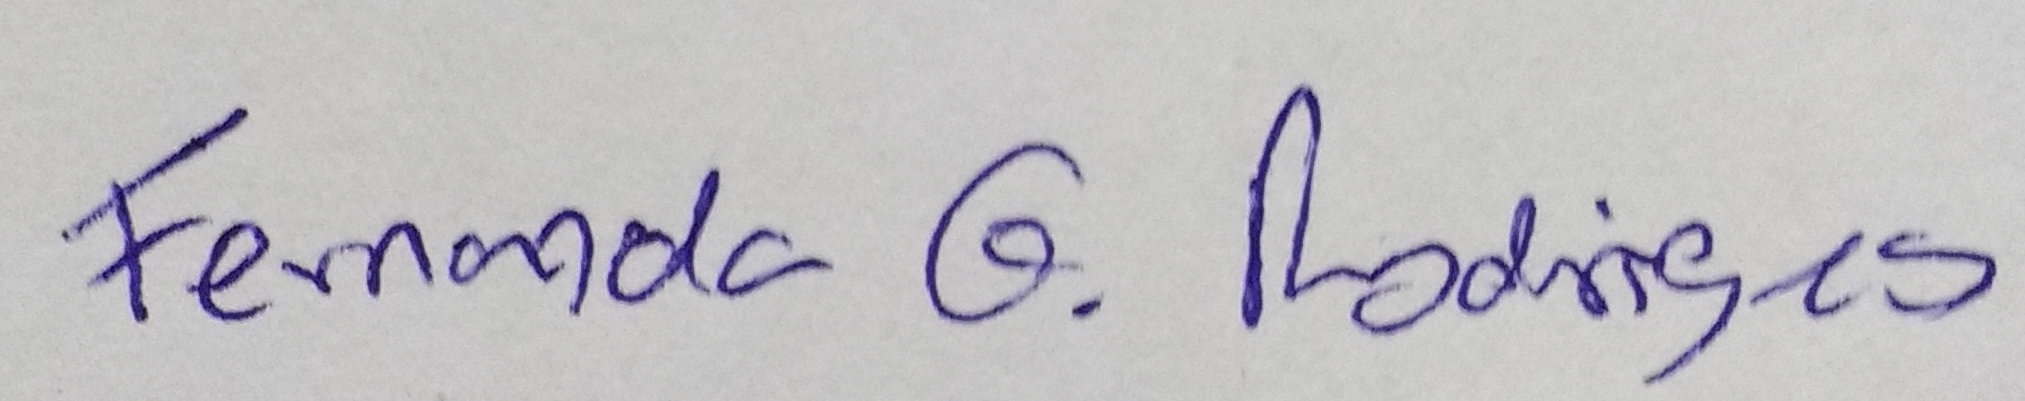 Fernanda G. Rodrigues